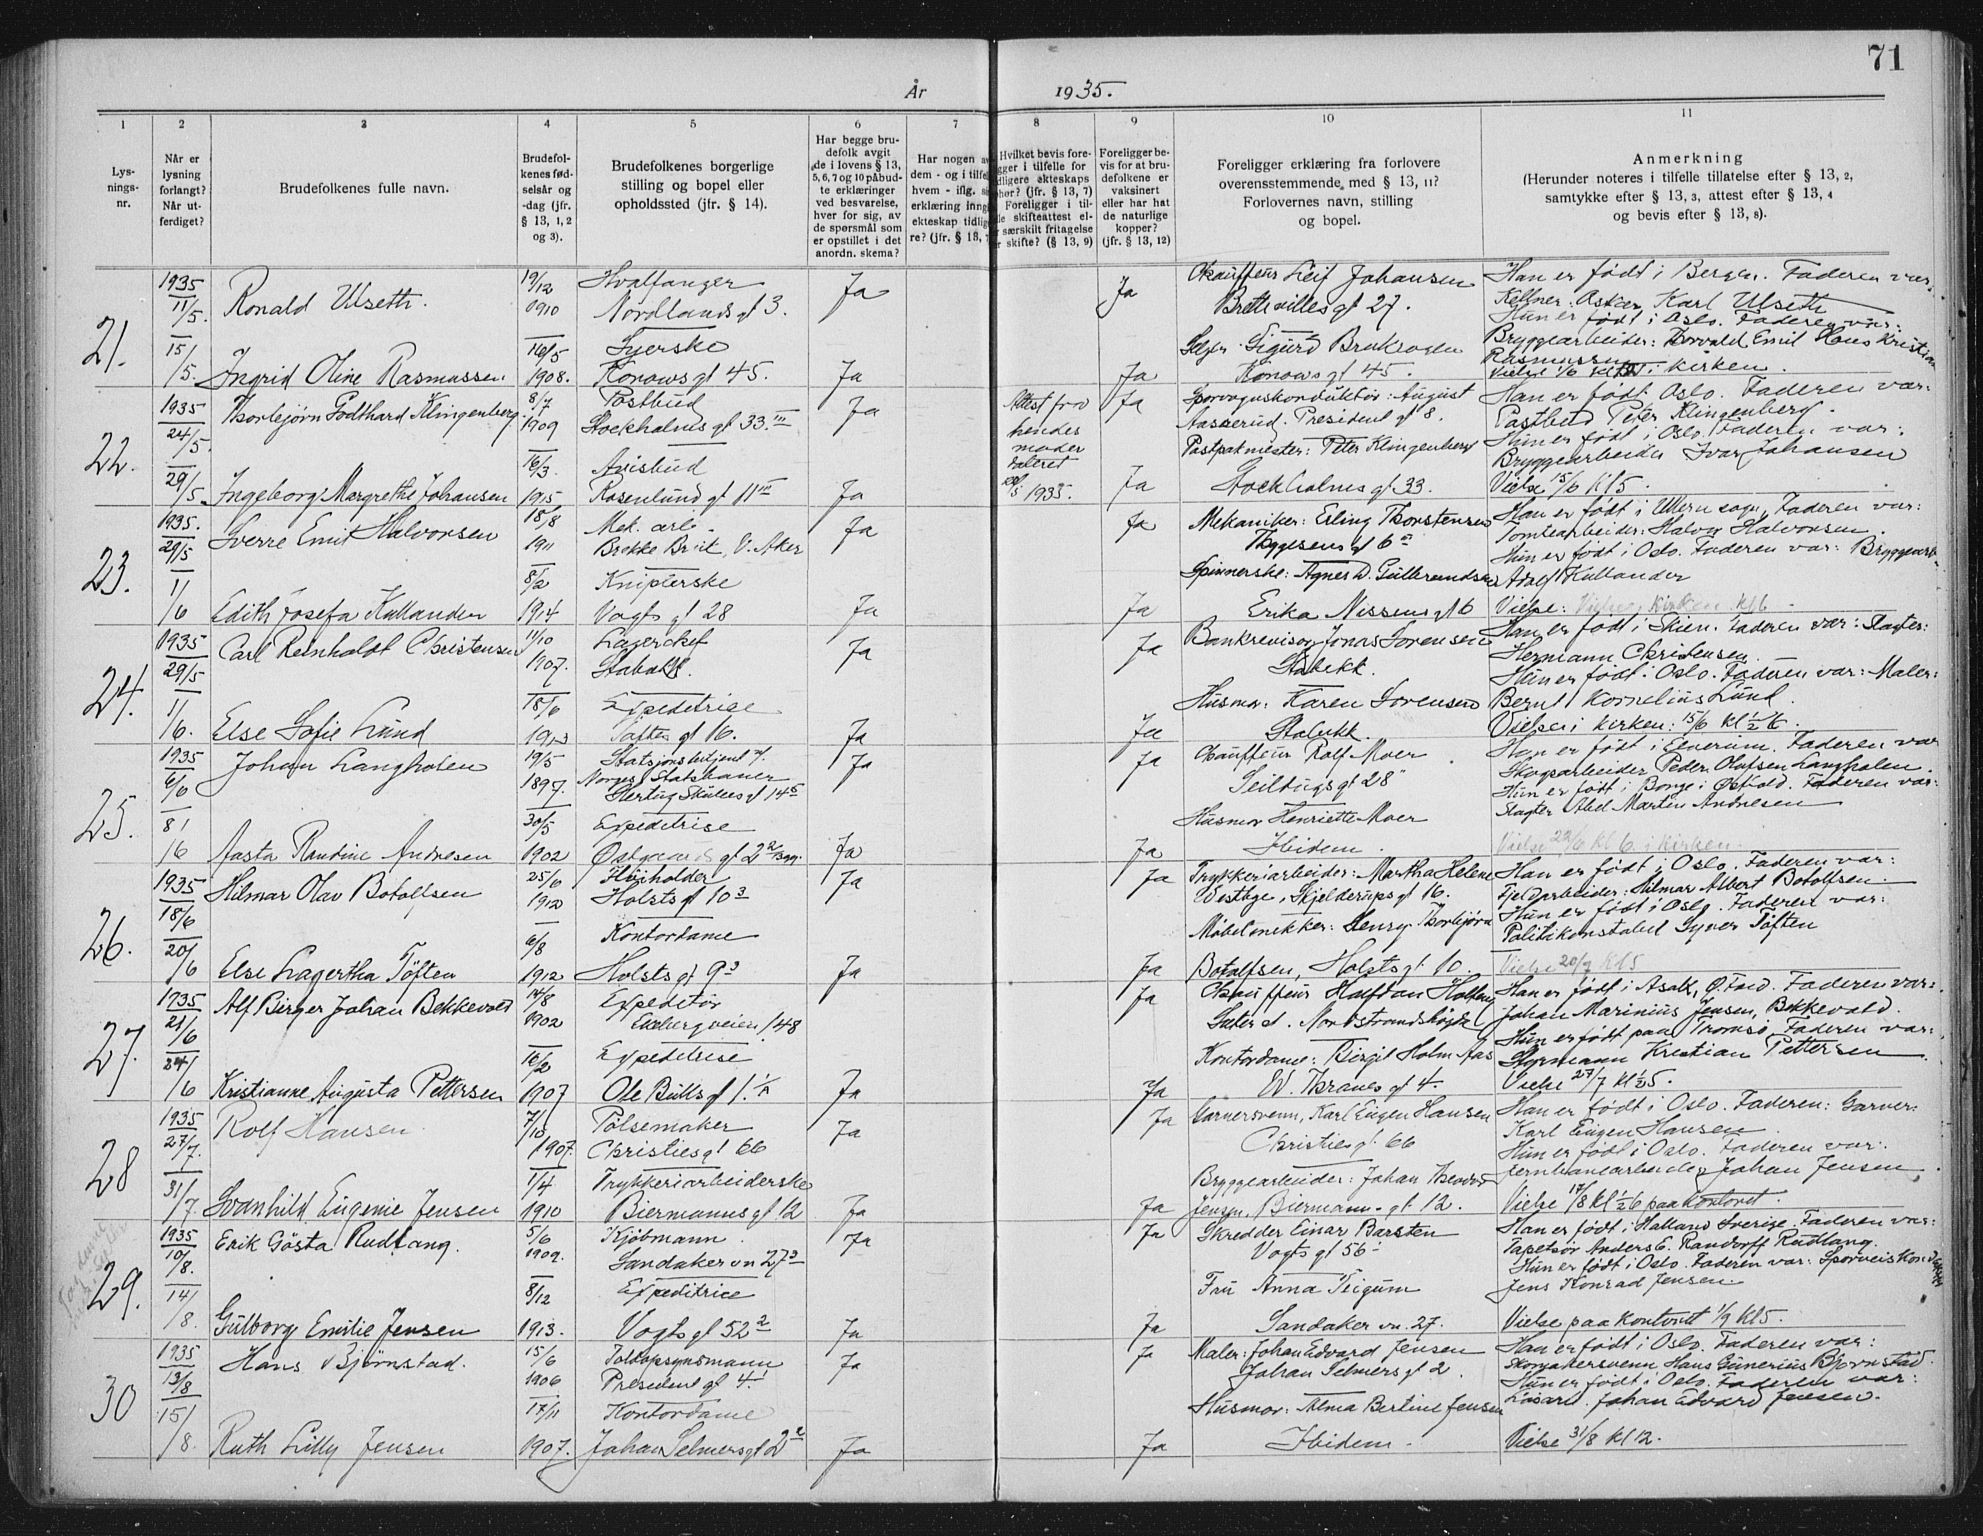 71
År 1935.
1 2 3 4 5 6 7 8 9 10 11
Lysnings-nr.
Når er lysning forlangt? Når utferdiget?
Brudefolkenes fulle navn.
Brudefolkenes fødselsår og -dag (jfr. § 13, 1, 2 og 3).
Brudefolkenes borgerlige stilling og bopel eller opholdssted (jfr. § 14).
Har begge brudefolk avgit de i lovens § 13, 5, 6, 7 og 10 påbudte erklæringer ved besvarelse, hver for sig, av de spørsmål som er opstillet i det anordn. skema?
Foreligger bevis for at brudefolkene er vaksinert eller har hat de naturlige kopper? (jfr. § 13, 12)
Foreligger erklæring fra forlovere overensstemmende med § 13, 11? Forlovernes navn, stilling og bopel.
Anmerkning
(Herunder noteres i tilfelle tillatelse efter § 13, 2, samtykke efter § 13, 3, attest efter § 13, 4 og bevis efter § 13, 8).
21.
1935 11/5. 15/5.
Ronald Ulseth. 19/12 1910 Hvalfanger Nordlands gt 3. Ja
Ja Chauffeur Leif Johansen
Brettevilles gt 27.
Han er født i Bergen. Faderen var:
Kellner: Karl Ulseth
Hun er født i Oslo. Faderen var:
Ingrid Oline Rasmussen 16/5 1908. Syerske Konows gt 45. Ja
Ja Selger Sigurd
Konows gt 45.
Bryggearbeider: Thorvald Emil Hans Kristian
Rasmussen
Vielse 1/6 kirken.
22.
1935 24/5. 29/5
Thorbjørn Godthard Klingenberg. 8/7 1909 Postbud Stockholms gt 33.III Ja
Attest fra hendes moder dateret 1935.
Ja Sporvognskonduktør: August
Aasserud. President gt 8.
Han er født i Oslo. Faderen var:
Postbud Peter Klingenberg.
Hun er født i Oslo. Faderen var:
Ingeborg Margrethe Johansen 16/3. 1915 Avisbud Rosenlund gt 11 III Ja
Ja Postpakmester: Peter Klingenberg
Stockholms gt 33.
Bryggearbeider Ivar Johansen
Vielse 15/6 kl 5.
23.
1935. 29/5 1/6
Sverre Emil Halvorsen 18/8 1911 Mek. arb. V. Aker Ja
Ja Mekaniker: Erling Thorstensen
Thygesens gt 6
Han er født i Ullern sogn, Faderen var:
Tomtearbeider: Halvor Halvorsen.
Hun er født i Oslo. Faderen var: Bryggearb.
Edith Josefa Kullander 8/2 1914 Kniplerske Vogts gt 28 Ja
Ja Spinnerske: Agnes D. Gulbrandsen
Erika Nissens gt 6
Adolf Kullander
Vielse: Vielse i kirken kl 6
24.
1935 29/5 1/6.
Carl Reinholdt Christensen 11/10 1907. Lagerchef Stabekk. Ja
Ja Bankrevisor Jonas Sørensen
Stabekk.
Han er født i Skien. Faderen var: Slagter:
Hermann Christensen
Hun er født i Oslo. Faderen var: Maler:
Else Sofie Lund 18/6 1913 Expeditrice Toftes gt 16. Ja
Ja Husmor: Karen Sørensen
Stabekk.
Bernt Kornelius Lund.
Vielse i kirken: 15/6 kl 1/2 6.
25.
1935 6/6 8/6
Johan Langholen 19/5 1897. Stasjonsbetjent v. Norges Statsbaner Hertug Skules gt 14 Ja
Ja Chauffeur Rolf Moer
Seildugs gt 28
Han er født i Elverum. Faderen var
Skogsarbeider Peder Olafsen Langholen.
Hun er født i Borge i Østfold. Faderen var:
Aasta Randine Andresen 30/5 1902 Expeditrise Østgaards gt 2 Ja
Ja Husmor Henriette Moer
Ibidem.
Slagter Abel Martin Andresen
Vielse 22/6 kl 6 i kirken.
26.
1935 18/6 20/6
Hilmar Olav Botolfsen 25/6 1912 Holsts gt 10 3 Ja
Ja Trykkeriarbeider: Martha Helene
Westbye, Skjelderups gt 16.
Han er født i Oslo. Faderen var:
Fjellarbeider: Hilmar Albert Botolfsen.
Hun er født i Oslo. Faderen var:
Else Lagertha Töften 6/8 1912 Kontordame Holsts gt 9 3 Ja
Ja Møbelsnekker: Henry Thorbjørn
Botolfsen, Holsts gt 10.
Politikonstabel Syver Töften
Vielse 20/7 kl 5
27.
1935 21/6 24/6
Alf Birger Johan Bekkevold 14/8 1902 Expeditør Ekebergveien 148
Ja Chauffeur Halfdan Holten
Sæter st. Nordstrandshøgda
Han er født i Asak, Ø. Fold. Faderen var:
Johan Marinius Jensen, Bekkevold.
Hun er født paa Tromsø, Faderen var:
Kristianne Augusta Pettersen 16/2 1907 Expeditrise Ole Bulls gt 1. Ja
Ja Kontordame: Birgit Holm Aas
W. Thranes gt 4.
Styrmann Kristian Pettersen
Vielse 27/7 kl 1/2 5.
28
1935 27/7. 31/7
Rolf Hansen 7/10 1907. Pølsemaker Christies gt 66 Ja
Ja Garversvenn, Karl Eugen Hansen
Christies gt 66
Han er født i Oslo. Faderen: Garver:
Karl Eugen Hansen
Hun er født i Oslo. Faderen var:
Svanhild Eugenie Jensen 1/4 1910 Trykkeriarbeiderske Biermanns gt 12 Ja
Ja Bryggearbeider: Johan Theodor
Jensen, Biermanns gt 12.
Jernbanearbeider Johan Jensen
Vielse 17/8 kl 1/2 6 paa kontoret.
29.
1935 10/8. 14/8.
Erik Gösta Rudlang. 5/6 1909. Kjøbmann Sandaker vn 27 3 Ja
Ja Skredder Einar Barsten
Vogts gt 56
Han er født i Halland Sverige. Faderen var:
Tapetsør Anders E. Randorff Rudlang.
Hun er født i Oslo. Faderen var: Sporveiskonduktør
Gulborg Emilie Jensen 8/12 1913. Expeditrice Vogts gt 52 2 Ja
Ja Fru Anna Teigum
Sandaker vn. 27.
Jens Konrad Jensen.
Vielse paa kontoret 1/9 kl 5.
30
1935 13/8 15/8.
Hans Bjørnstad. 15/6 1906 Toldopsynsmann President gt 4. Ja
Ja Maler: Johan Edvard Jensen
Johan Selmers gt 2
Han er født i Oslo. Faderen var:
Skomakersvenn Hans Gunerius Bjørnstad.
Hun er født i Oslo. Faderen var:
Ruth Lilly Jensen 17/11 1907. Kontordame Johan Selmers gt 2 2 Ja
Ja Husmor: Alma Bertine Jensen
Ibidem.
Johan Edvard Jensen.
Vielse 31/8 kl 12.